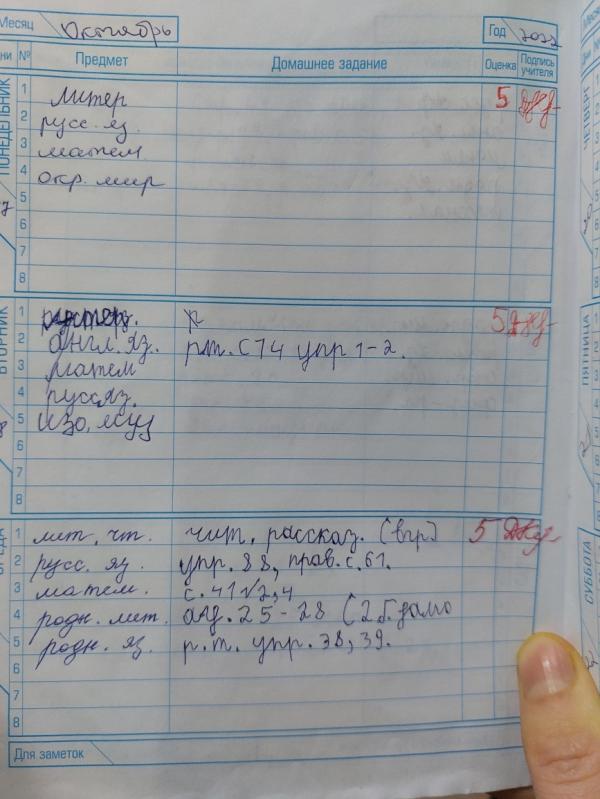 Месяц Октябрь Год 2022
№ Предмет Домашнее задание Оценка Подпись учителя
ПОНЕДЕЛЬНИК
1 литер 5
2 русс. яз.
3 матем
4 окр. мир
5
6
7
8
ВТОРНИК
1
2 англ. яз. р.т. с 74 упр 1-2.
3 матем
4 русс яз.
5 изо, муз
6
7
8
5
СРЕДА
1 лит. чт. чит. рассказ. (вгр) 5
2 русс. яз. упр. 88, прав. с. 61.
3 матем. с. 41 √2,4
4 родн. лит. 25-28
5 родн. яз. р.т. упр. 38, 39.
6
7
8
Для заметок
ЧЕТВЕРГ
ПЯТНИЦА
СУББОТА